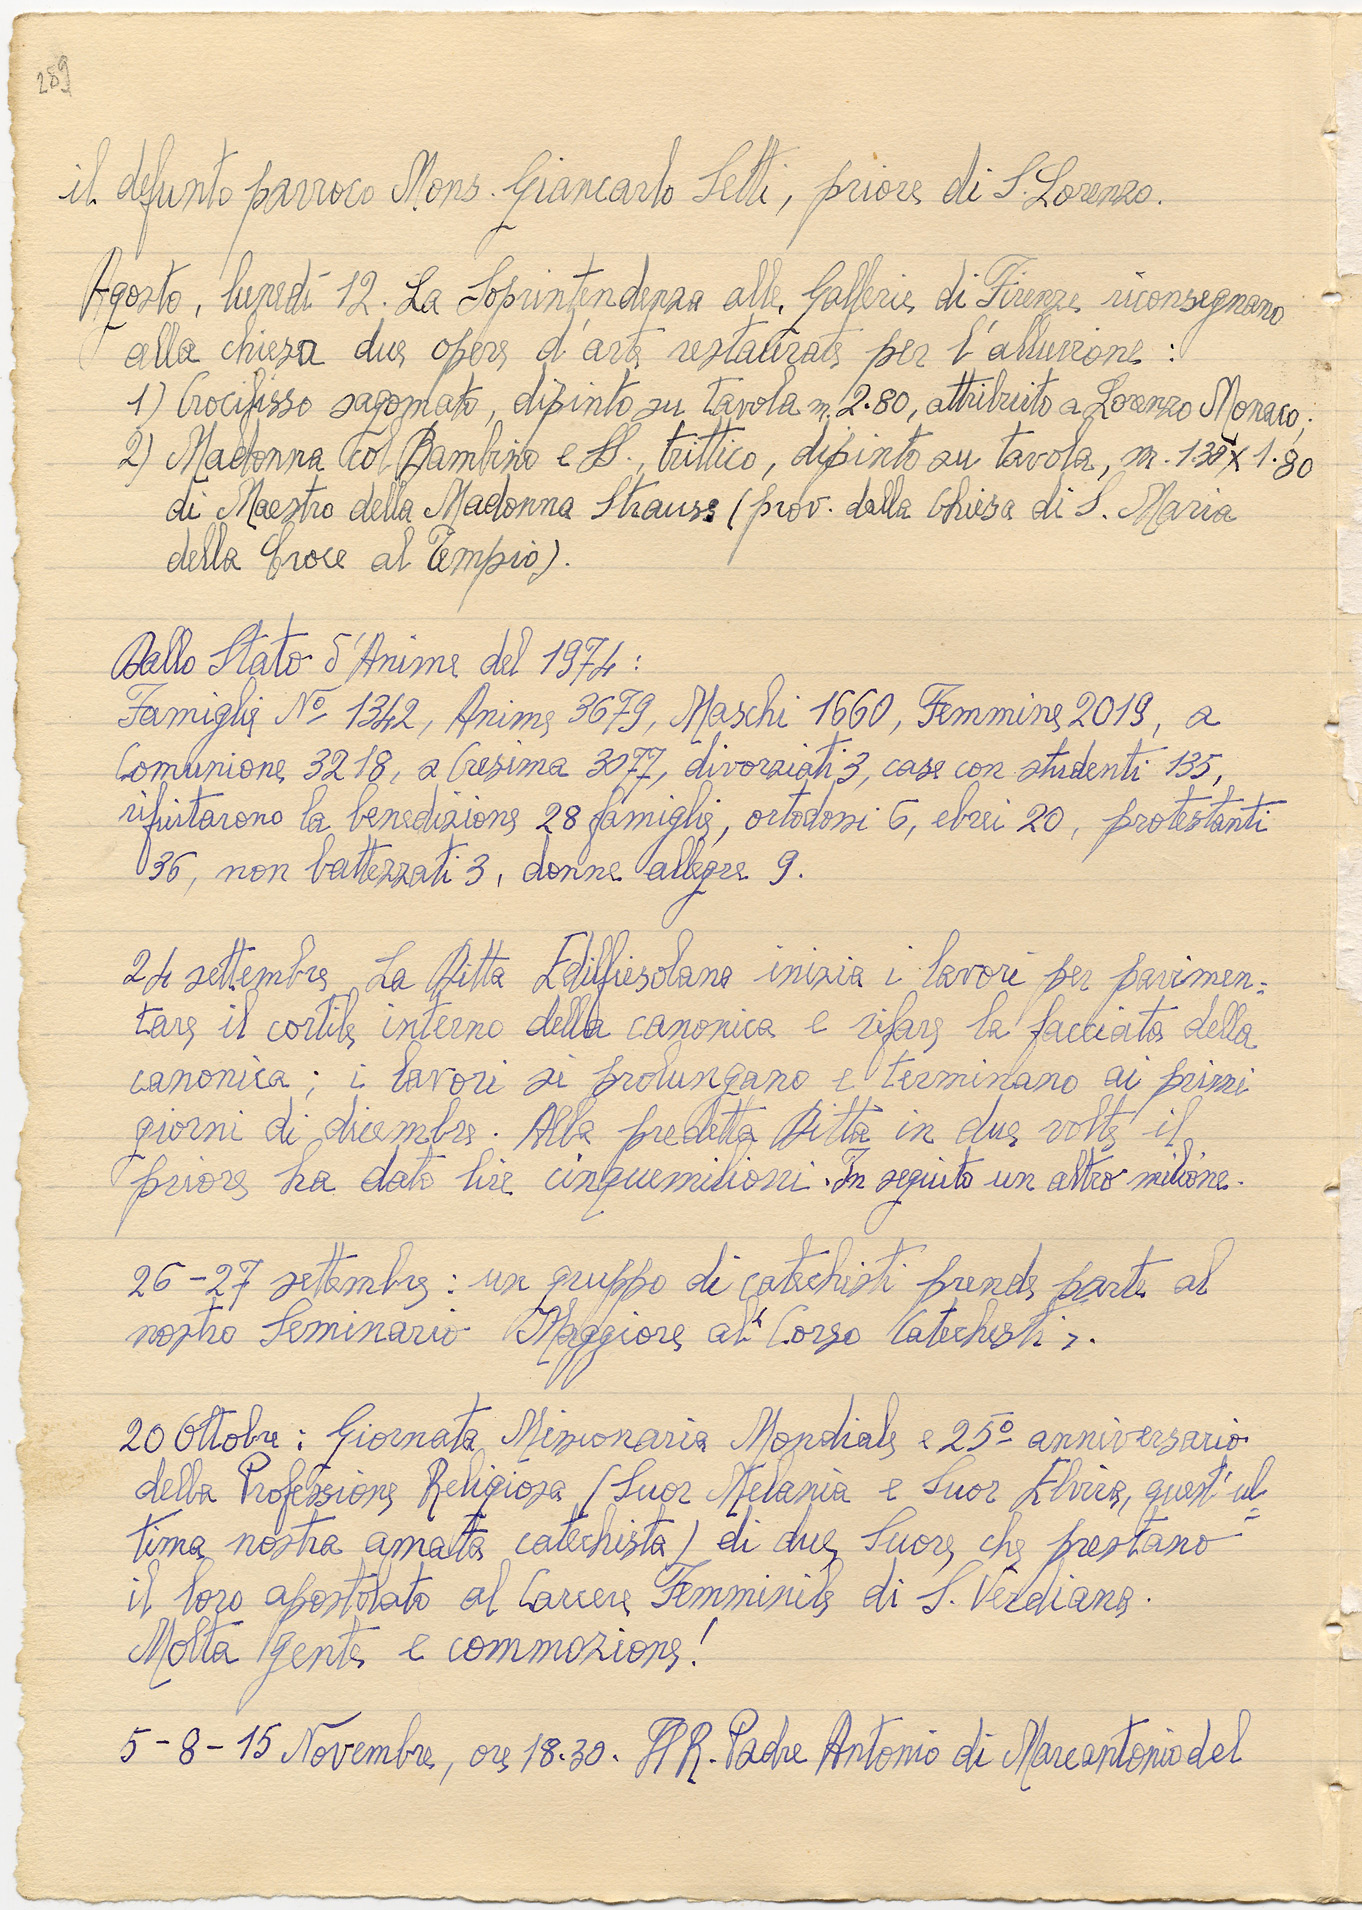 289
il defunto parroco Mons. Giancarlo Setti, priore di S. Lorenzo.
Agosto, lunedì 12. La Soprintendenza alle Gallerie di Firenze riconsegnano
alla chiesa due opere d'arte restaurate per l'alluvione :
1) Crocifisso sagomato, dipinto su tavola m. 2.80, attribuito a Lorenzo Monaco;
2) Madonna col Bambino e SS., trittico, dipinto su tavola, m. 1.30 x 1.80
di Maestro della Madonna Strauss (prov. dalla Chiesa di S. Maria
della Croce al Tempio).
Dallo Stato d'Anime del 1974 :
Famiglie Nº 1342, Anime 3679, Maschi 1660, Femmine 2019, a
Comunione 3218, a Cresima 3077, divorziati 3, case con studenti 135,
rifiutarono la benedizione 28 famiglie, ortodossi 6, ebrei 20, protestanti
36, non battezzati 3, donne allegre 9.
24 settembre La Ditta Edilfiesolana inizia i lavori per pavimen=
tare il cortile interno della canonica e rifare la facciata della
canonica ; i lavori si prolungano e terminano ai primi
giorni di dicembre. Alla predetta Ditta in due volte il
priore ha dato lire cinquemilioni. In seguito un altro milione.
26-27 settembre : un gruppo di catechisti prende parte al
nostro Seminario Maggiore al "Corso Catechisti".
20 Ottobre : Giornata Missionaria Mondiale e 25º anniversario
della Professione Religiosa (Suor Melania e Suor Elvira, quest'ul=
tima nostra amata catechista) di due Suore che prestano
il loro apostolato al Carcere Femminile di S. Verdiana.
Molta gente e commozione!
5-8-15 Novembre, ore 18.30. Il R. Padre Antonio di Marcantonio del